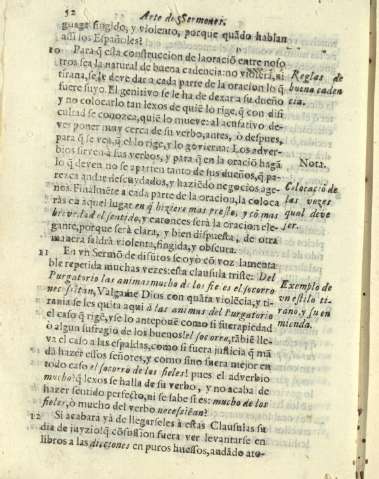 52 Arte de Sermones.
guage fingido, y violento, porque quãdo hablan
assi los Españoles?
10 Para q̃ esta construccion de la oració entre noso
tros sea la natural de buena cadencia: no violẽta, ni
tirana, se le deve dar a cada parte de la oracion lo q̃
fuere suyo. El genitivo se le ha de dexar a su dueño
y no colocarlo tan lexos de quié lo rige, q̃ con difi
cultad se conozca, quié lo mueve: al acusativo de-
ves poner muy cerca de su verbo, antes, ò despues,
para q̃ se vea, q̃ el lo rige, y lo govierna: Los adver-
bios sirven à sus verbos, y para q̃ en la oració hagã
lo q̃ deven no se aparten tanto de sus dueños, q̃ pa-
rezca andar desmãdados, y haziẽdo negocios age-
nos. Finalmẽte a cada parte de la oracion, la coloca
ràs en aquel lugar en q̃ hiziere mas presto, y cõ mas
brevedad el sentido, y entonces serà la oracion ele-
gante, porque serà clara, y bien dispuesta, de otra
manera saldrà violenta, fingida, y obscura.
Reglas de
buena caden
cia.
Nota.
Colocació de
las vozes
qual deve
ser.
11 En vn Sermõ de difũtos se oyò cõ voz lamenta
ble repetida muchas vezes: esta clausula triste. Del
Purgatorio las animas mucho de los fieles el socorro
necessitan, Valgame Dios con quãta violẽcia, y ti-
rania se les quita aqui à las animas del Purgatorio
el caso q̃ rige, y se lo antepoñe como si fuera piedad
ò algun sufragio de los buenos! el socorro, tãbié lle-
va el caso a las espaldas, como si fuera justicia q̃ mã
dà hazer essos señores, y como sino fuera mejor en
todo caso el socorro de los fieles! pues el adverbio
mucho! q̃ lexos se halla de su verbo, y no acaba de
hazer sentido perfecto, ni se sabe si es: mucho de los
fieles, ò mucho del verbo necessitan?
Exemplo de
vn estilo ti
rano, y su en
mienda.
12 Si acabarà yà de llegarseles à estas Clausulas su
dia de juyzio! q̃ cõfusion fuera ver levantarse en
libros a las dicciones en puros huessos, andãdo ato-